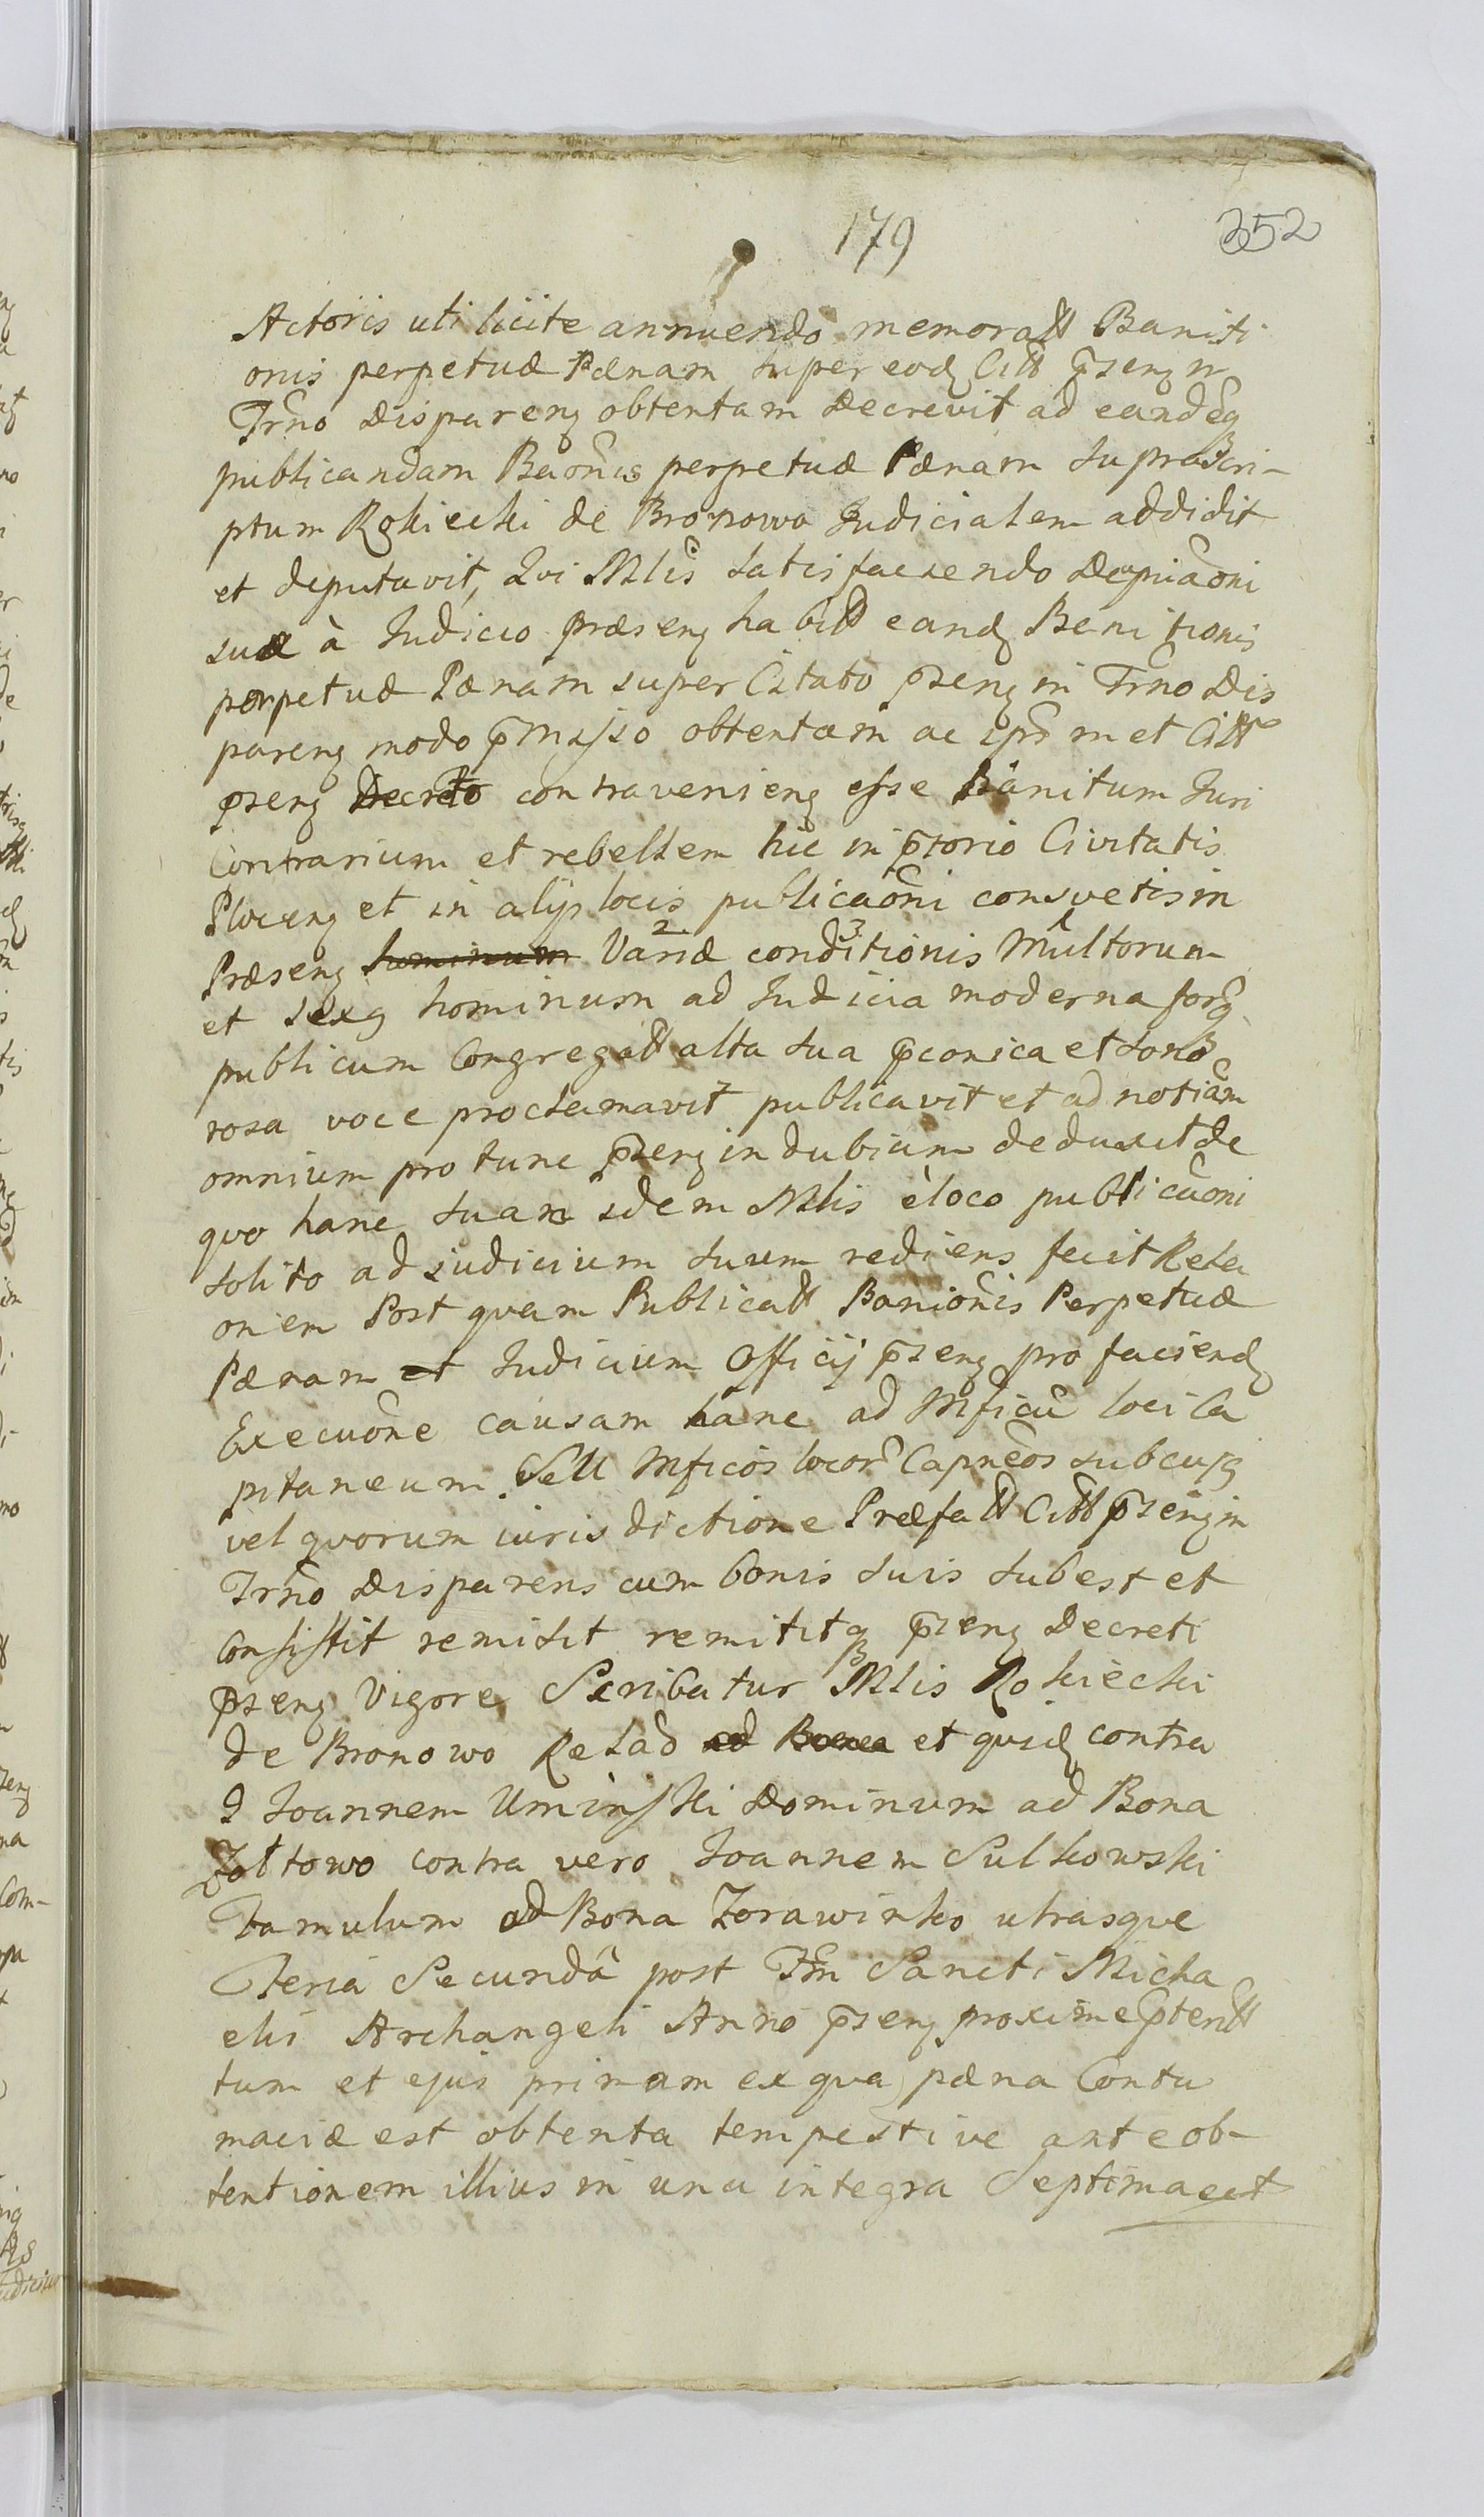 179
352
Actoris uti licite annuendo memoratt Baniti
onis perpetuæ Pænam super eodz Citt pńseng in
Trno dispareng obtentam decrevit ad eandēq
publicandam Baonis perpetuæ Pænam suprascri-
ptum Rokiecki de Bronowo Judicialem addidit
et deputavit, Qui Mlis satisfaciendo
suæ à Judicio præseng habitt eandz Banitionis
perpetuæ Pænam super Citato pseng in Trno Dis
pareng modo pmisso obtentam ac ipsmet Citt
pseng Decreto contravenieng esse Banitum Juri
Contrarium et rebellem hic in ptorio Civitatis
Ploceng et in alijs locis publicaoni consvetis in
Præseng hominum Variæ 2 conditionis 3 Multorum 1
et sexq hominum ad Judicia moderna forq
publicum Congregatt alta sua pconica et sono
rosa voce proclamavit publicavit et ad notiam
omnium pro tunc pseng indubiam deduxit de
quo hanc suam idem Mlis è loco publicaoni
solito ad judicium suum rediens fecit Rela
onem Post quam Publicatt Banionis Perpetuæ
Pænam et Judicium Officij pseng pro faciendz
Execuone causam hanc ad Mficu loci Ca
pitaneum Vell Mficos locor Capneos sub cujq
vel quorum iurisdictione Præfatt Citt pseng in
Trno Disparens cum bonis suis subest et
Consistit remisit remititq pseng Decreti
pseng Vigore Scribatur Mlis Rokiecki
de Bronowo Relad ad Bona et quidz contra
J Joannem Uminski Dominum ad Bona
Zołtowo contra vero Joannem Sulkowski
Famulum ad Bona Zorawinko utrasque
Feria Secundâ post Fm Sancti Micha
elis Archangeli Anno pseng proxime ptentt
tum et ejus primam ex qua pæna Contu
maciæ est obtenta tempestive ante ob-
tentionem illius in una integra Septima est